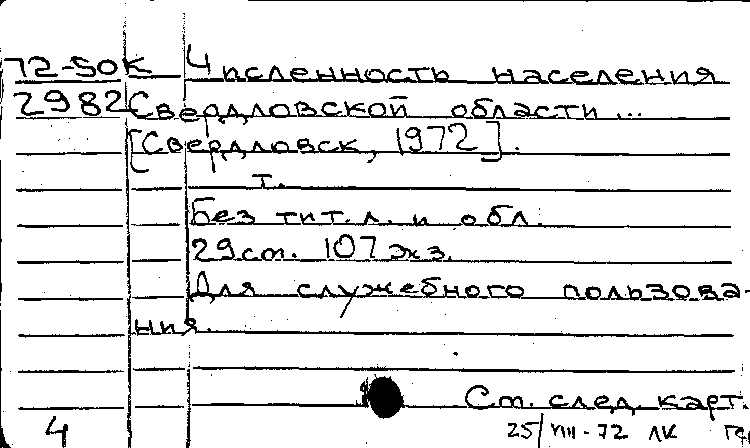 72-50К Численность населения
2982 Свердловской области...
[Свердловск, 1972].
т.
Без тит. л. и обл.
29 см. 107 экз.
Для служебного пользова-
ния.
См. след. карт.
4 25/VIII-72 ЛК